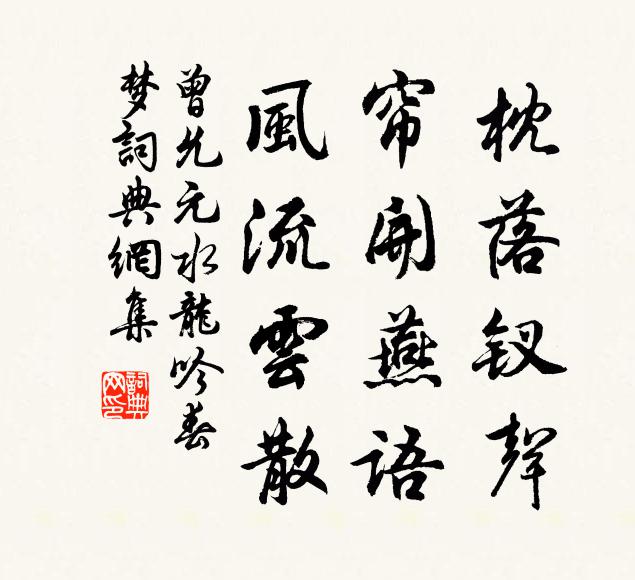 枕落钗聲
帘開燕語
風流雲散
曾允元水龍吟春
梦詞典網集
詞典
网印